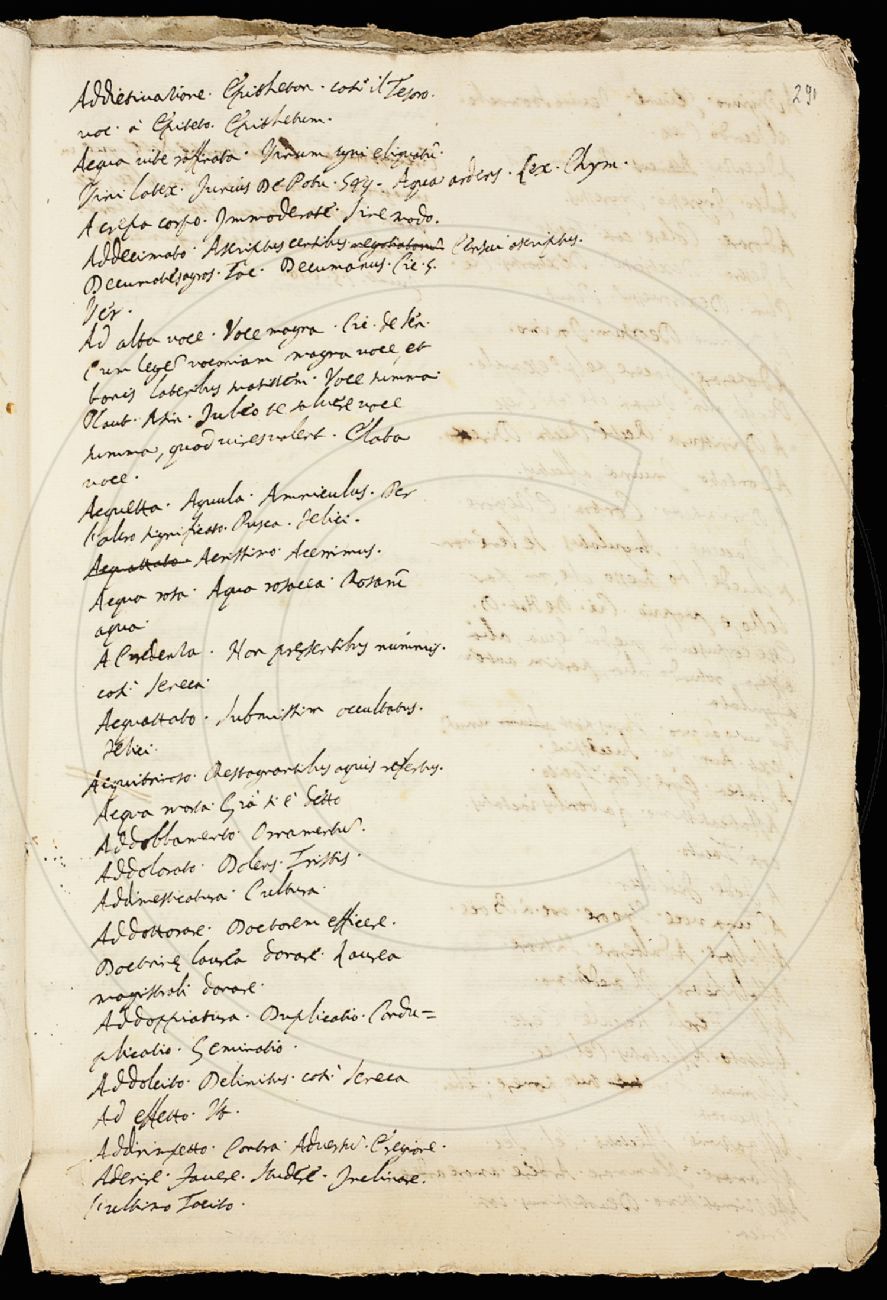 291
Addiettivatione. Epitheton. così il Tesoro.
voc. à Epiteto. Epithetum.
Acqua vite raffinata. Vinum igni eliquatũ.
Vini latex. Junius De Potu. Aqua ardens. Lex. Chym.
A crepa corpo. Immoderatè. Sine modo.
Addecimato. Ascriptus censibus negotiatorum Censui ascriptus.
Decumates agros. Tac. Decumanus. Cic. 5.
Ver.
Ad alta voce. Voce magna. Cic. de Sen.
Cum legẽ voconiam magna voce, et
bonis lateribus suasissem. Voce summa
Plaut. Asin. Jubeo te salvere voce
summa, quod vires valent. Elata
voce.
Acquetta. Aquula. Amniculus. Per
l'altro significato. Posca. Felici.
Acquattato Acrissimo. Acerrimus.
Acqua rosa. Aqua rosacea. Rosarũ
aqua.
A Credenza. Non præsentibus nummis.
così Seneca.
Acquattato. Submissim occultatus.
Felici.
Acquitrinoso. Restagnantibus aquis refertus.
Acqua morta. Già si è detto
Addobbamento. Ornamentũ.
Addolorato. Dolens. Tristis.
Addimesticatura. Cultura.
Addottorare. Doctorem efficere.
Doctrinę laurea donare. Laurea
magistrali donare.
Addoppiatura. Duplicatio. Condu=
plicatio. Geminatio.
Addolcito. Delinitus. così Seneca
Ad effetto. Ut.
Addirimpetto. Contra. Adversũ. E regione.
Aderire. Favere. Studere. Inclinare.
l'ultimo Tacito.